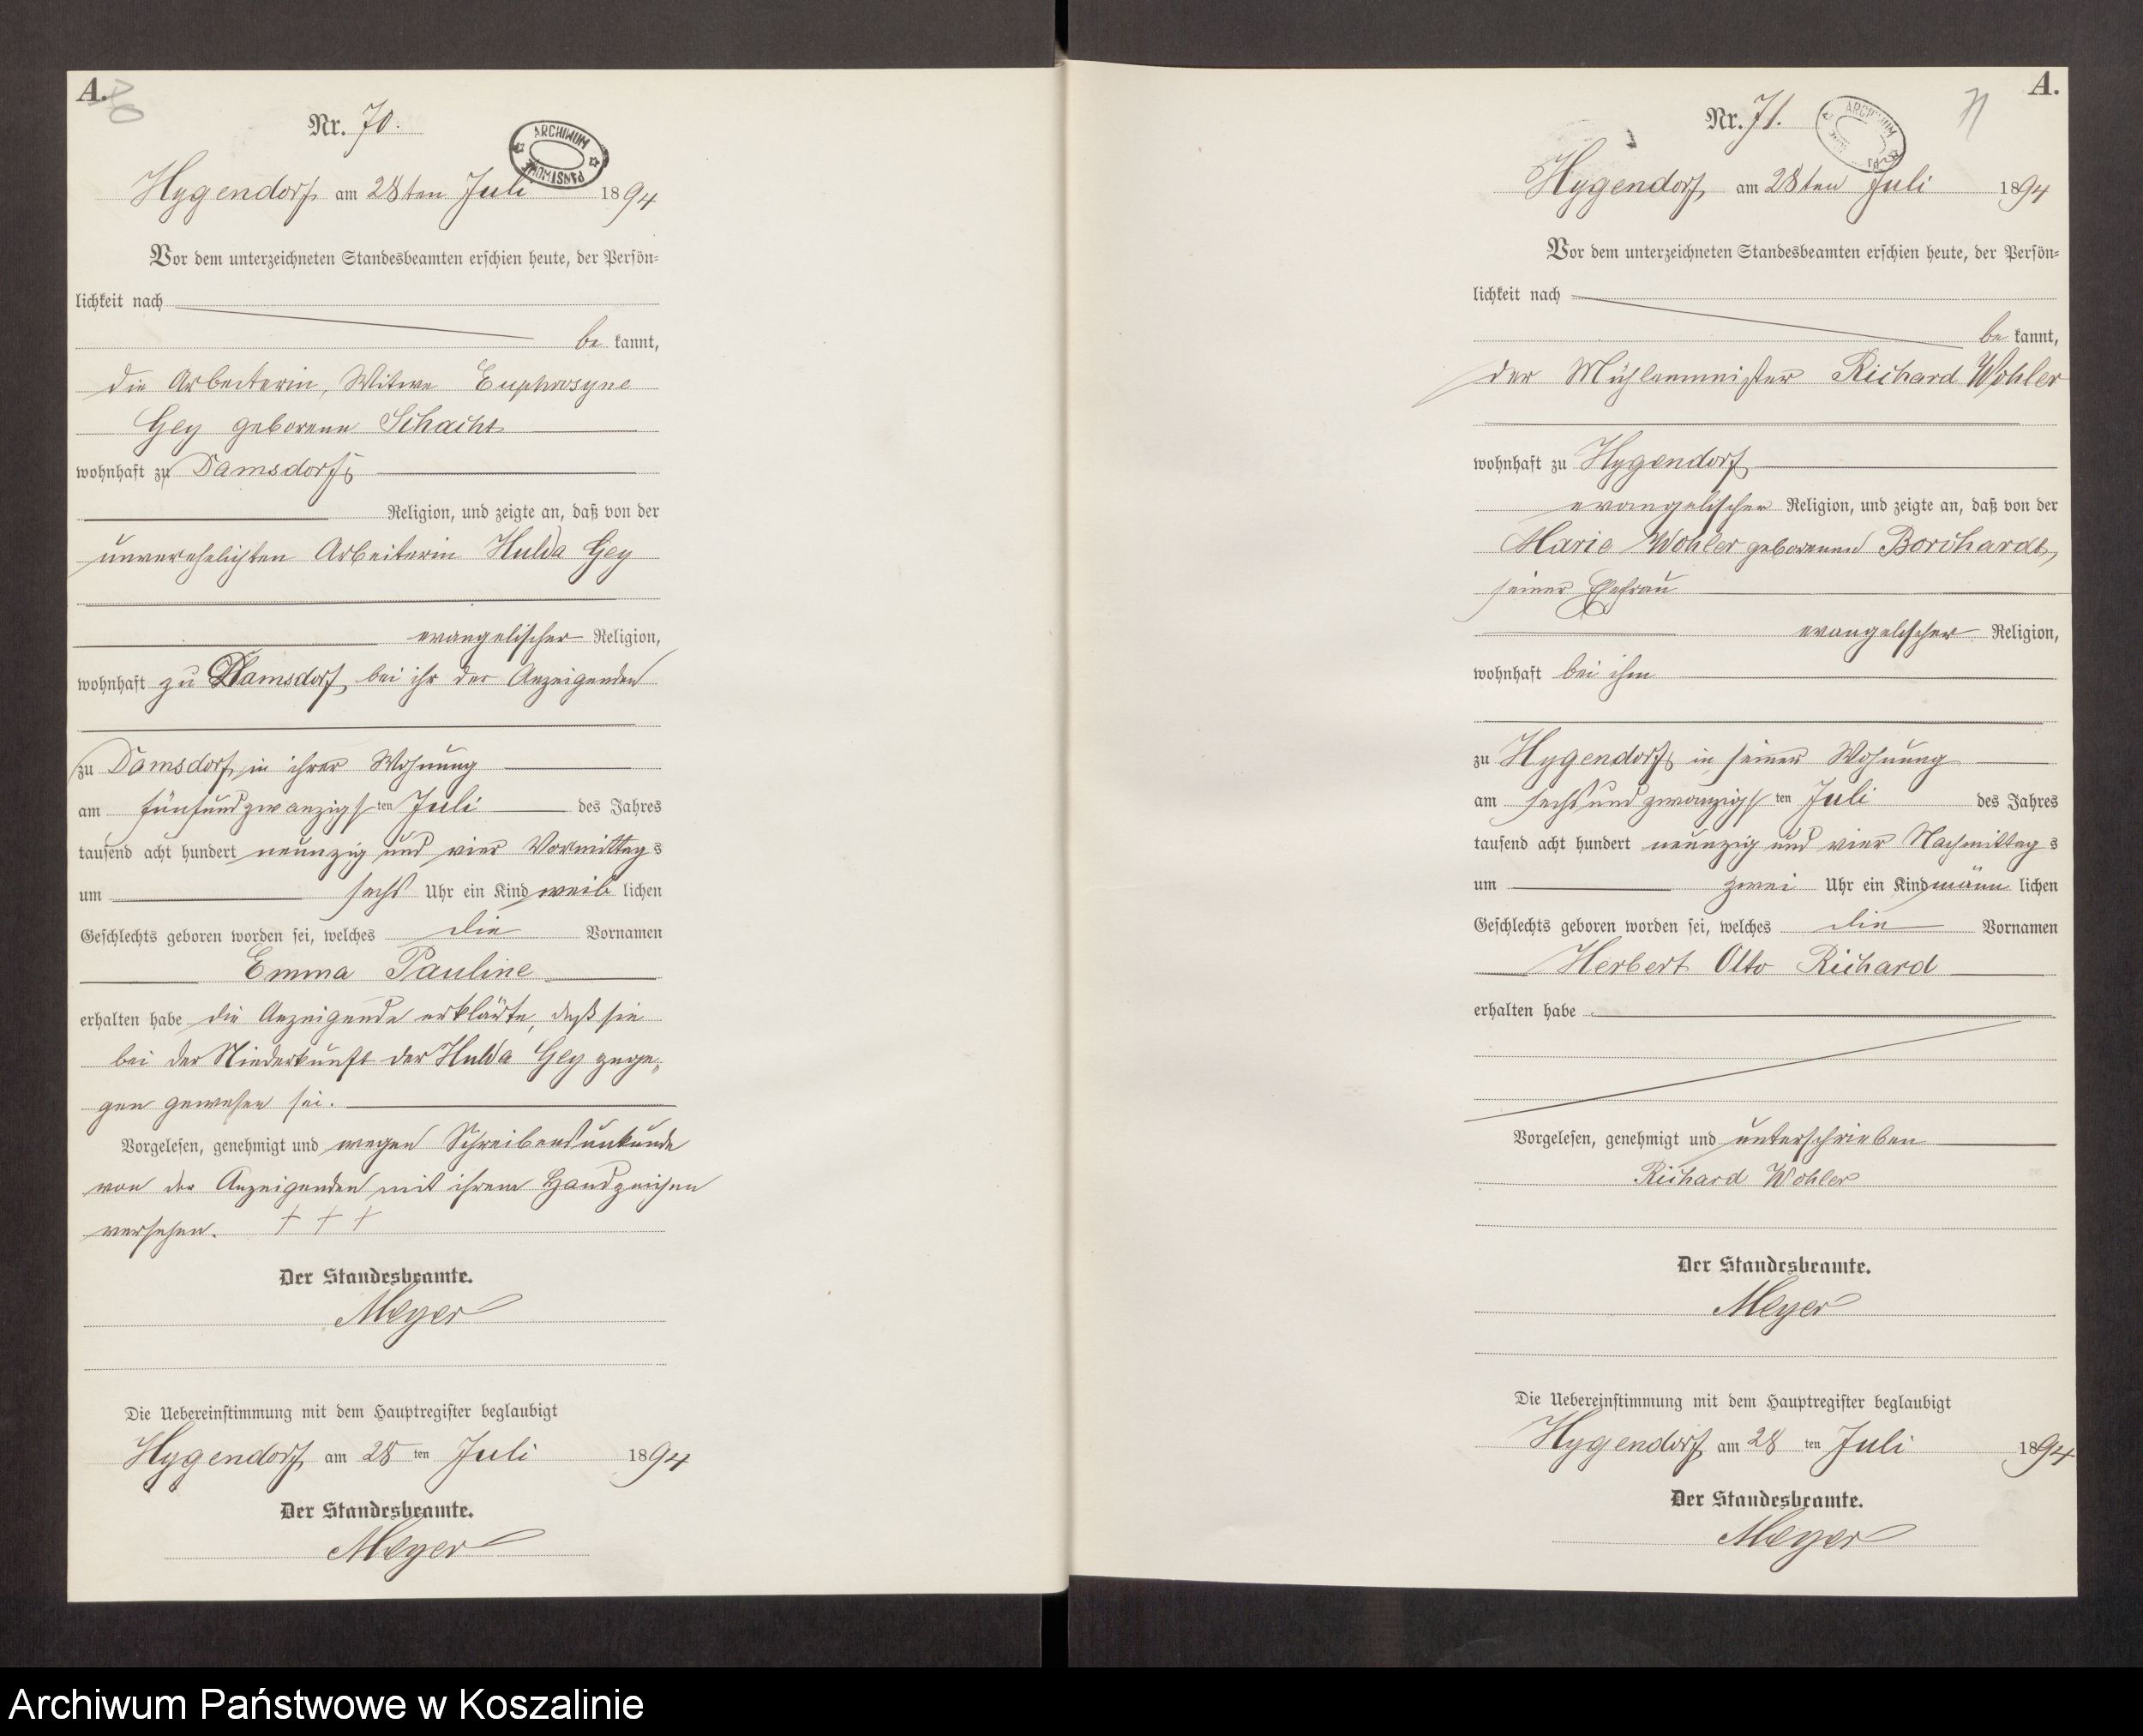 A.
70
Nr. 70.
ARCHIWUM PAŃSTWOWE
Hygendorf, am 28ten Juli 1894
Vor dem unterzeichneten Standesbeamten erschien heute, der Persön-
lichkeit nach
be kannt,
die Arbeiterin, Witwe Euphrosyne
Gey geborene Schacht
wohnhaft zu Damsdorf,
Religion, und zeigte an, daß von der
unverehelichten Arbeiterin Hulda Gey
evangelischer Religion,
wohnhaft zu Damsdorf, bei ihr der Anzeigenden
zu Damsdorf, in ihrer Wohnung
am fünfundzwanzigs ten Juli des Jahres
tausend acht hundert neunzig und vier Vormittags
um sechs Uhr ein Kind weib lichen
Geschlechts geboren worden sei, welches die Vornamen
Emma Pauline
erhalten habe die Anzeigende erklärte, daß sie
bei der Niederkunft der Hulda Gey zuge-
gen gewesen sei.
Vorgelesen, genehmigt und wegen Schreibensunkunde
von der Anzeigenden mit ihrem Handzeichen
versehen. + + +
Der Standesbeamte.
Meyer
Die Uebereinstimmung mit dem Hauptregister beglaubigt
Hygendorf, am 28 ten Juli 1894
Der Standesbeamte.
Meyer
A.
71
Nr. 71.
Hygendorf, am 28ten Juli 1894
Vor dem unterzeichneten Standesbeamten erschien heute, der Persön-
lichkeit nach
be kannt,
der Mühlenmeister Richard Wohler
wohnhaft zu Hygendorf,
evangelischer Religion, und zeigte an, daß von der
Marie Wohler geborenen Borchardt,
seiner Ehefrau
evangelischer Religion,
wohnhaft bei ihm
zu Hygendorf, in seiner Wohnung
am sechsundzwanzigs ten Juli des Jahres
tausend acht hundert neunzig und vier Nachmittags
um zwei Uhr ein Kind männ lichen
Geschlechts geboren worden sei, welches die Vornamen
Herbert Otto Richard
erhalten habe
Vorgelesen, genehmigt und unterschrieben
Richard Wohler
Der Standesbeamte.
Meyer
Die Uebereinstimmung mit dem Hauptregister beglaubigt
Hygendorf, am 28 ten Juli 1894
Der Standesbeamte.
Meyer
Archiwum Państwowe w Koszalinie